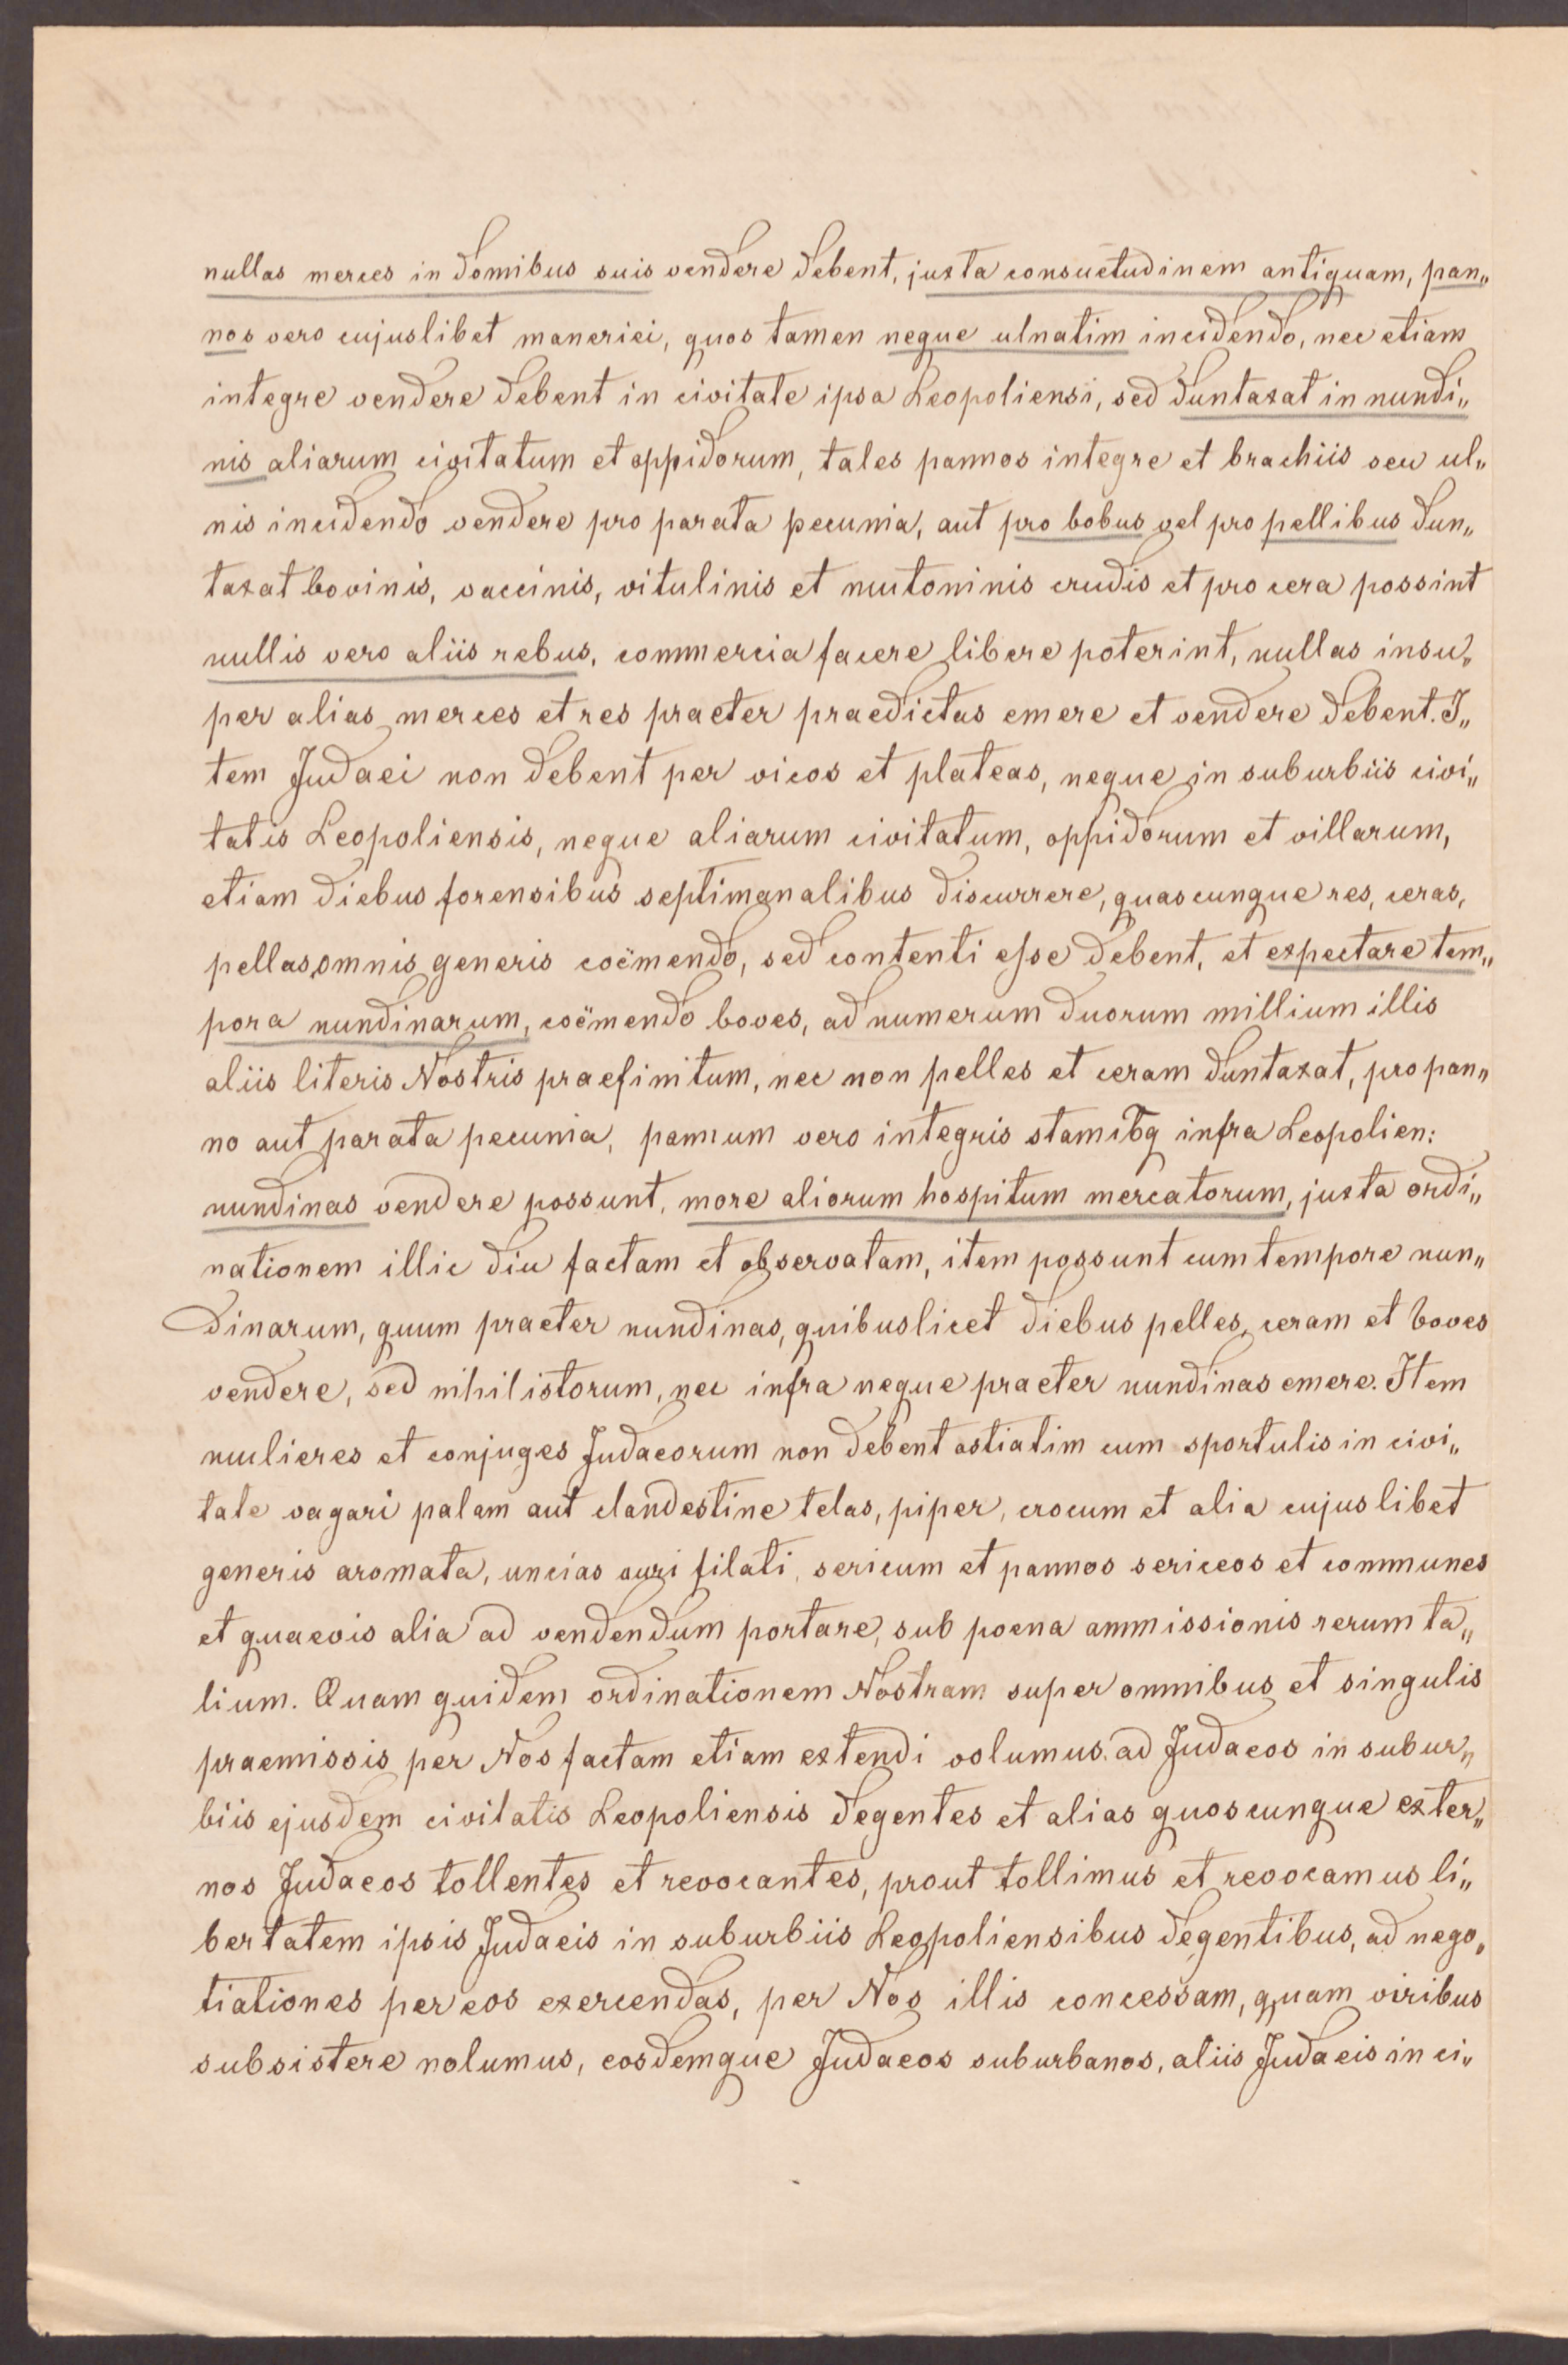 nullas merces in domibus suis vendere debent, juxta consuetudinem antiquam, pan„
nos vero cujuslibet maneriei, quos tamen neque ulnatim incidendo, nec etiam
integre vendere debent in civitate ipsa Leopoliensi, sed duntaxat in nundi„
nis aliarum civitatum et oppidorum, tales pannos integre et brachiis seu ul„
nis incidendo vendere pro parata pecunia, aut pro bobus vel pro pellibus dun„
taxat bovinis, vaccinis, vitulinis et mutoninis crudis et pro cera possint
nullis vero aliis rebus, commercia facere libere poterint, nullas insu„
per alias merces et res praeter praedictas emere et vendere debent. I„
tem Judaei non debent per vicos et plateas, neque in suburbiis civi„
tatis Leopoliensis, neque aliarum civitatum, oppidorum et villarum,
etiam diebus forensibus septimanalibus discurrere, quascunque res, ceras,
pellas omnis generis coëmendo, sed contenti esse debent, et expectare tem„
pora nundinarum, coëmendo boves, ad numerum duorum millium illis
aliis literis Nostris praefinitum, nec non pelles et ceram duntaxat, pro pan„
no aut parata pecunia, pannum vero integris stamibq infra Leopolien:
nundinas vendere possunt, more aliorum hospitum mercatorum, juxta ordi„
nationem illic diu factam et observatam, item possunt cum tempore nun„
dinarum, quum praeter nundinas, quibuslicet diebus pelles, ceram et boves
vendere, sed nihil istorum, nec infra neque praeter nundinas emere. Item
mulieres et conjuges Judaeorum non debent ostiatim cum sportulis in civi„
tate vagari palam aut clandestine telas, piper, crocum et alia cujuslibet
generis aromata, uncias auri filati, sericum et pannos sericeos et communes
et quaevis alia ad vendendum portare, sub poena ammissionis rerum ta„
lium. Quam quidem ordinationem Nostram super omnibus et singulis
praemissis per Nos factam etiam extendi volumus ad Judaeos in subur„
biis ejusdem civitatis Leopoliensis degentes et alias quoscunque exter„
nos Judaeos tollentes et revocantes, prout tollimus et revocamus li„
bertatem ipsis Judaeis in suburbiis Leopoliensibus degentibus, ad nego„
tiationes per eos exercendas, per Nos illis concessam, quam viribus
subsistere nolumus, eosdemque Judaeos suburbanos, aliis Judaeis in ci„